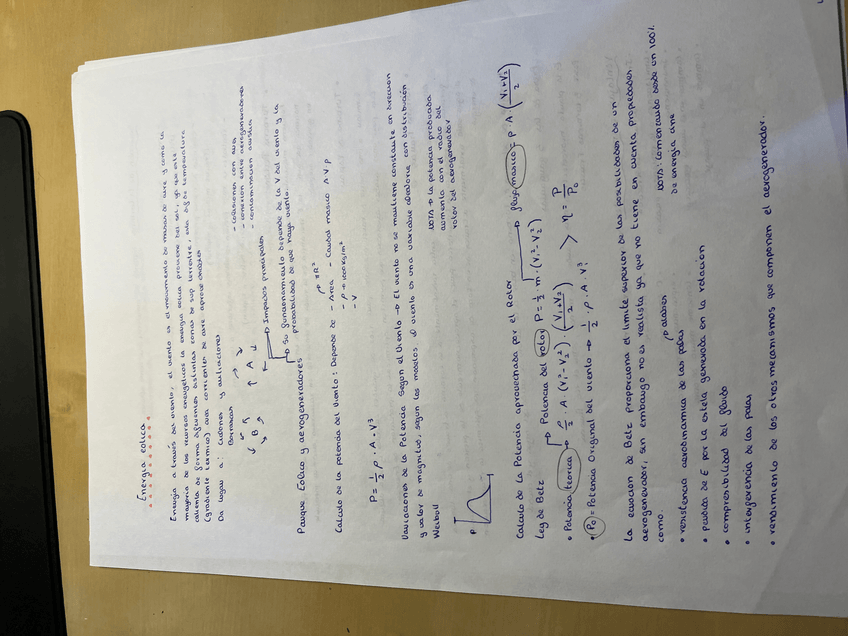 Energía eólica
Energía a través del viento, el viento es el movimiento de masas de aire y como la
mayoría de los recursos energéticos la energía eólica proviene del sol, ya que este
calienta de forma diferentes distintas zonas de sup terrestre, esta dif de temperatura
(gradiente térmico) crea corrientes de aire aprovechables
Da lugar a: Ciclones y anticiclones
Borrascas
B A
- colisiones con aves
→ Impactos principales - conexión entre aerogeneradores
- contaminación acústica
→ Su funcionamiento depende de la V del viento y la
probabilidad de que haya viento.
Parque Eólico y aerogeneradores
→ πR²
Calculo de la potencia del viento: Depende de - Area - Caudal masico A V ρ
- ρ → 1000 Kg/m²
- V
P = 1/2 ρ · A · V³
Variaciones de la Potencia Segun el Viento → El viento no se mantiene constante en direccion
y valor de magnitud, según los modelos el viento es una variable aleatoria con distribución
Weibull
NOTA → la potencia producida
aumenta con el radio del
rotor del aerogenerador
P
Calculo de la Potencia aprovechada por el Rotor
Ley de Betz → Potencia del rotor P = 1/2 · m · (V₁² - V₂²) → flujo masico = ρ A (V₁+V₂/2)
• Potencia teorica → ρ/2 · A · (V₁² - V₂²) · (V₁+V₂/2)
• P₀ = Potencia Original del viento → 1/2 · ρ · A · V₁³ > η = P/P₀
La ecuación de Betz proporciona el limite superior de las posibilidades de un
aerogenerador, sin embargo no es realista ya que no tiene en cuenta propiedades
como.
→ alabes
• resistencia aerodinamica de las palas
NOTA: Comenzando desde un 100%
de energia cine
• perdida de E por la estela generada en la rotación
• compresibilidad del fluido
• interferencia de las palas
• rendimiento de los otros mecanismos que componen el aerogenerador.